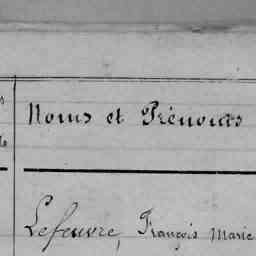 Noms et Prénoms
Lefeuvre, François Marie